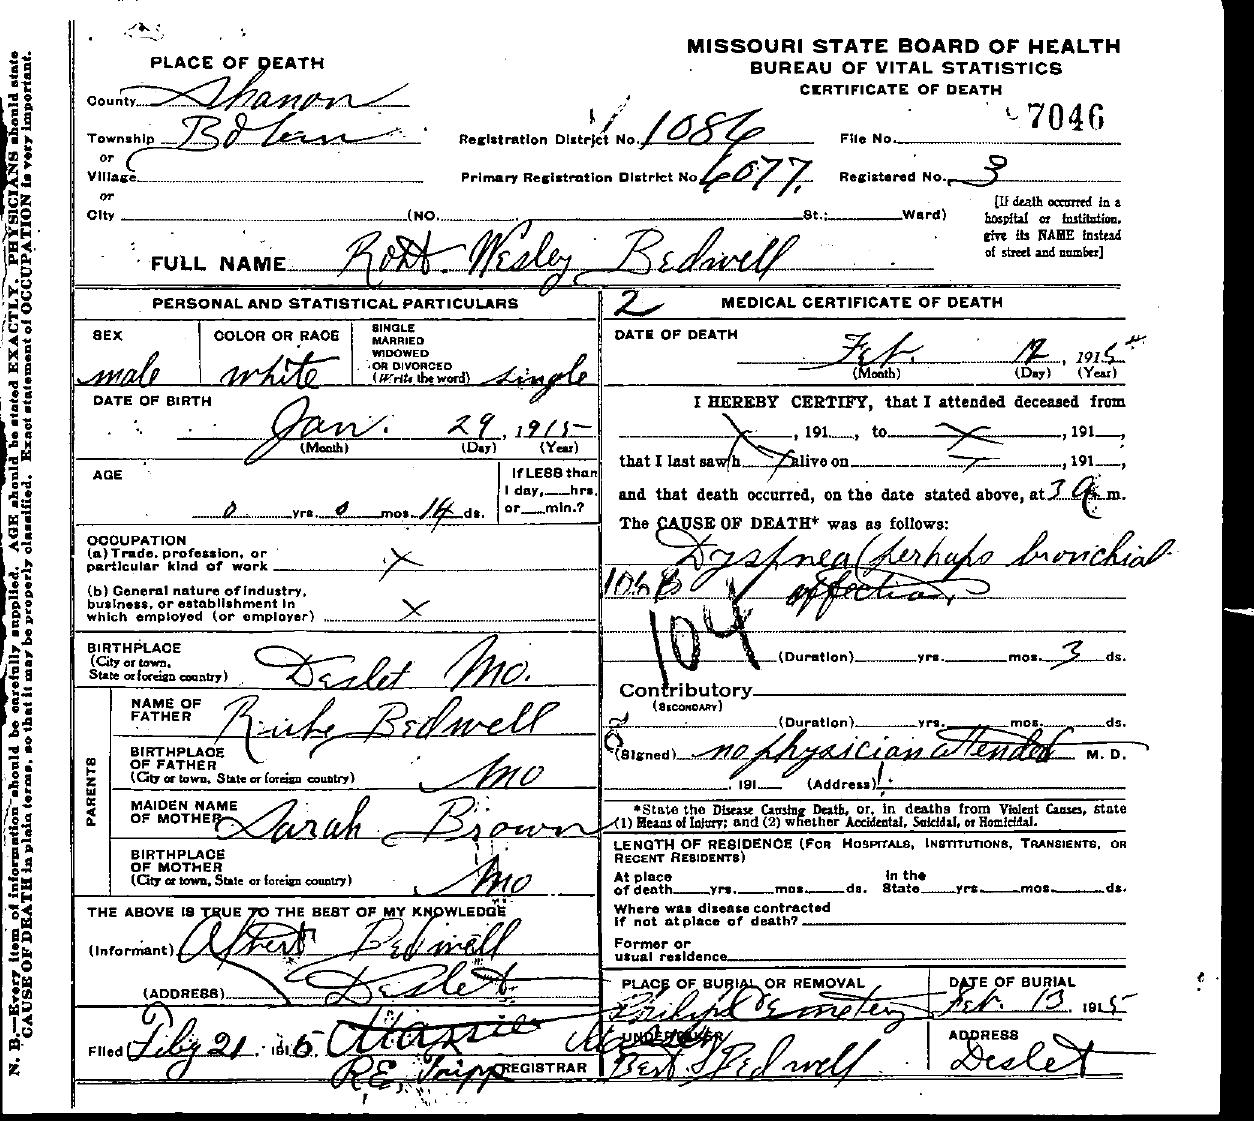 MISSOURI STATE BOARD OF HEALTH
BUREAU OF VITAL STATISTICS
CERTIFICATE OF DEATH
PLACE OF DEATH
County Shanon
Township
or
Village
or
City (NO. St.; Ward)
Registration District No. 1086
File No. 7046
Primary Registration District No. 6077.
Registered No. 3
[If death occurred in a
hospital or institution,
give its NAME instead
of street and number]
FULL NAME Robt. Wesley Bedwell
PERSONAL AND STATISTICAL PARTICULARS
SEX
male
COLOR OR RACE
white
SINGLE
MARRIED
WIDOWED
OR DIVORCED
(Write the word) single
DATE OF BIRTH
Jan. 29, 1915
(Month) (Day) (Year)
AGE
0 yrs. 0 mos. 14 ds.
If LESS than
1 day, hrs.
or min.?
OCCUPATION
(a) Trade, profession, or
particular kind of work X
(b) General nature of industry,
business, or establishment in
which employed (or employer) X
BIRTHPLACE
(City or town,
State or foreign country) Deslet Mo.
PARENTS
NAME OF
FATHER Bedwell
BIRTHPLACE
OF FATHER
(City or town, State or foreign country) Mo
MAIDEN NAME
OF MOTHER Sarah Brown
BIRTHPLACE
OF MOTHER
(City or town, State or foreign country) Mo
THE ABOVE IS TRUE TO THE BEST OF MY KNOWLEDGE
(Informant) Albert Bedwell
(ADDRESS) Deslet
Filed Feby 21, 1915
R.E. REGISTRAR
2 MEDICAL CERTIFICATE OF DEATH
DATE OF DEATH
Feb. 12, 1915
(Month) (Day) (Year)
I HEREBY CERTIFY, that I attended deceased from
X, 191, to X, 191,
that I last saw h alive on, 191,
and that death occurred, on the date stated above, at 3 a. m.
The CAUSE OF DEATH* was as follows:
Dyspnea (perhaps bronchial
affection)
104
(Duration) yrs. mos. 3 ds.
Contributory
(SECONDARY)
(Duration) yrs. mos. ds.
(Signed) no physician attended M. D.
, 191 (Address)
*State the Disease Causing Death, or, in deaths from Violent Causes, state
(1) Means of Injury; and (2) whether Accidental, Suicidal, or Homicidal.
LENGTH OF RESIDENCE (For Hospitals, Institutions, Transients, or
Recent Residents)
At place
of death yrs. mos. ds.
In the
State yrs. mos. ds.
Where was disease contracted
if not at place of death?
Former or
usual residence
PLACE OF BURIAL OR REMOVAL
Cemetery
DATE OF BURIAL
Feb. 13 1915
UNDERTAKER
Bert Bedwell
ADDRESS
Deslet
N. B.—Every item of information should be carefully supplied. AGE should be stated EXACTLY. PHYSICIANS should state
CAUSE OF DEATH in plain terms, so that it may be properly classified. Exact statement of OCCUPATION is very important.